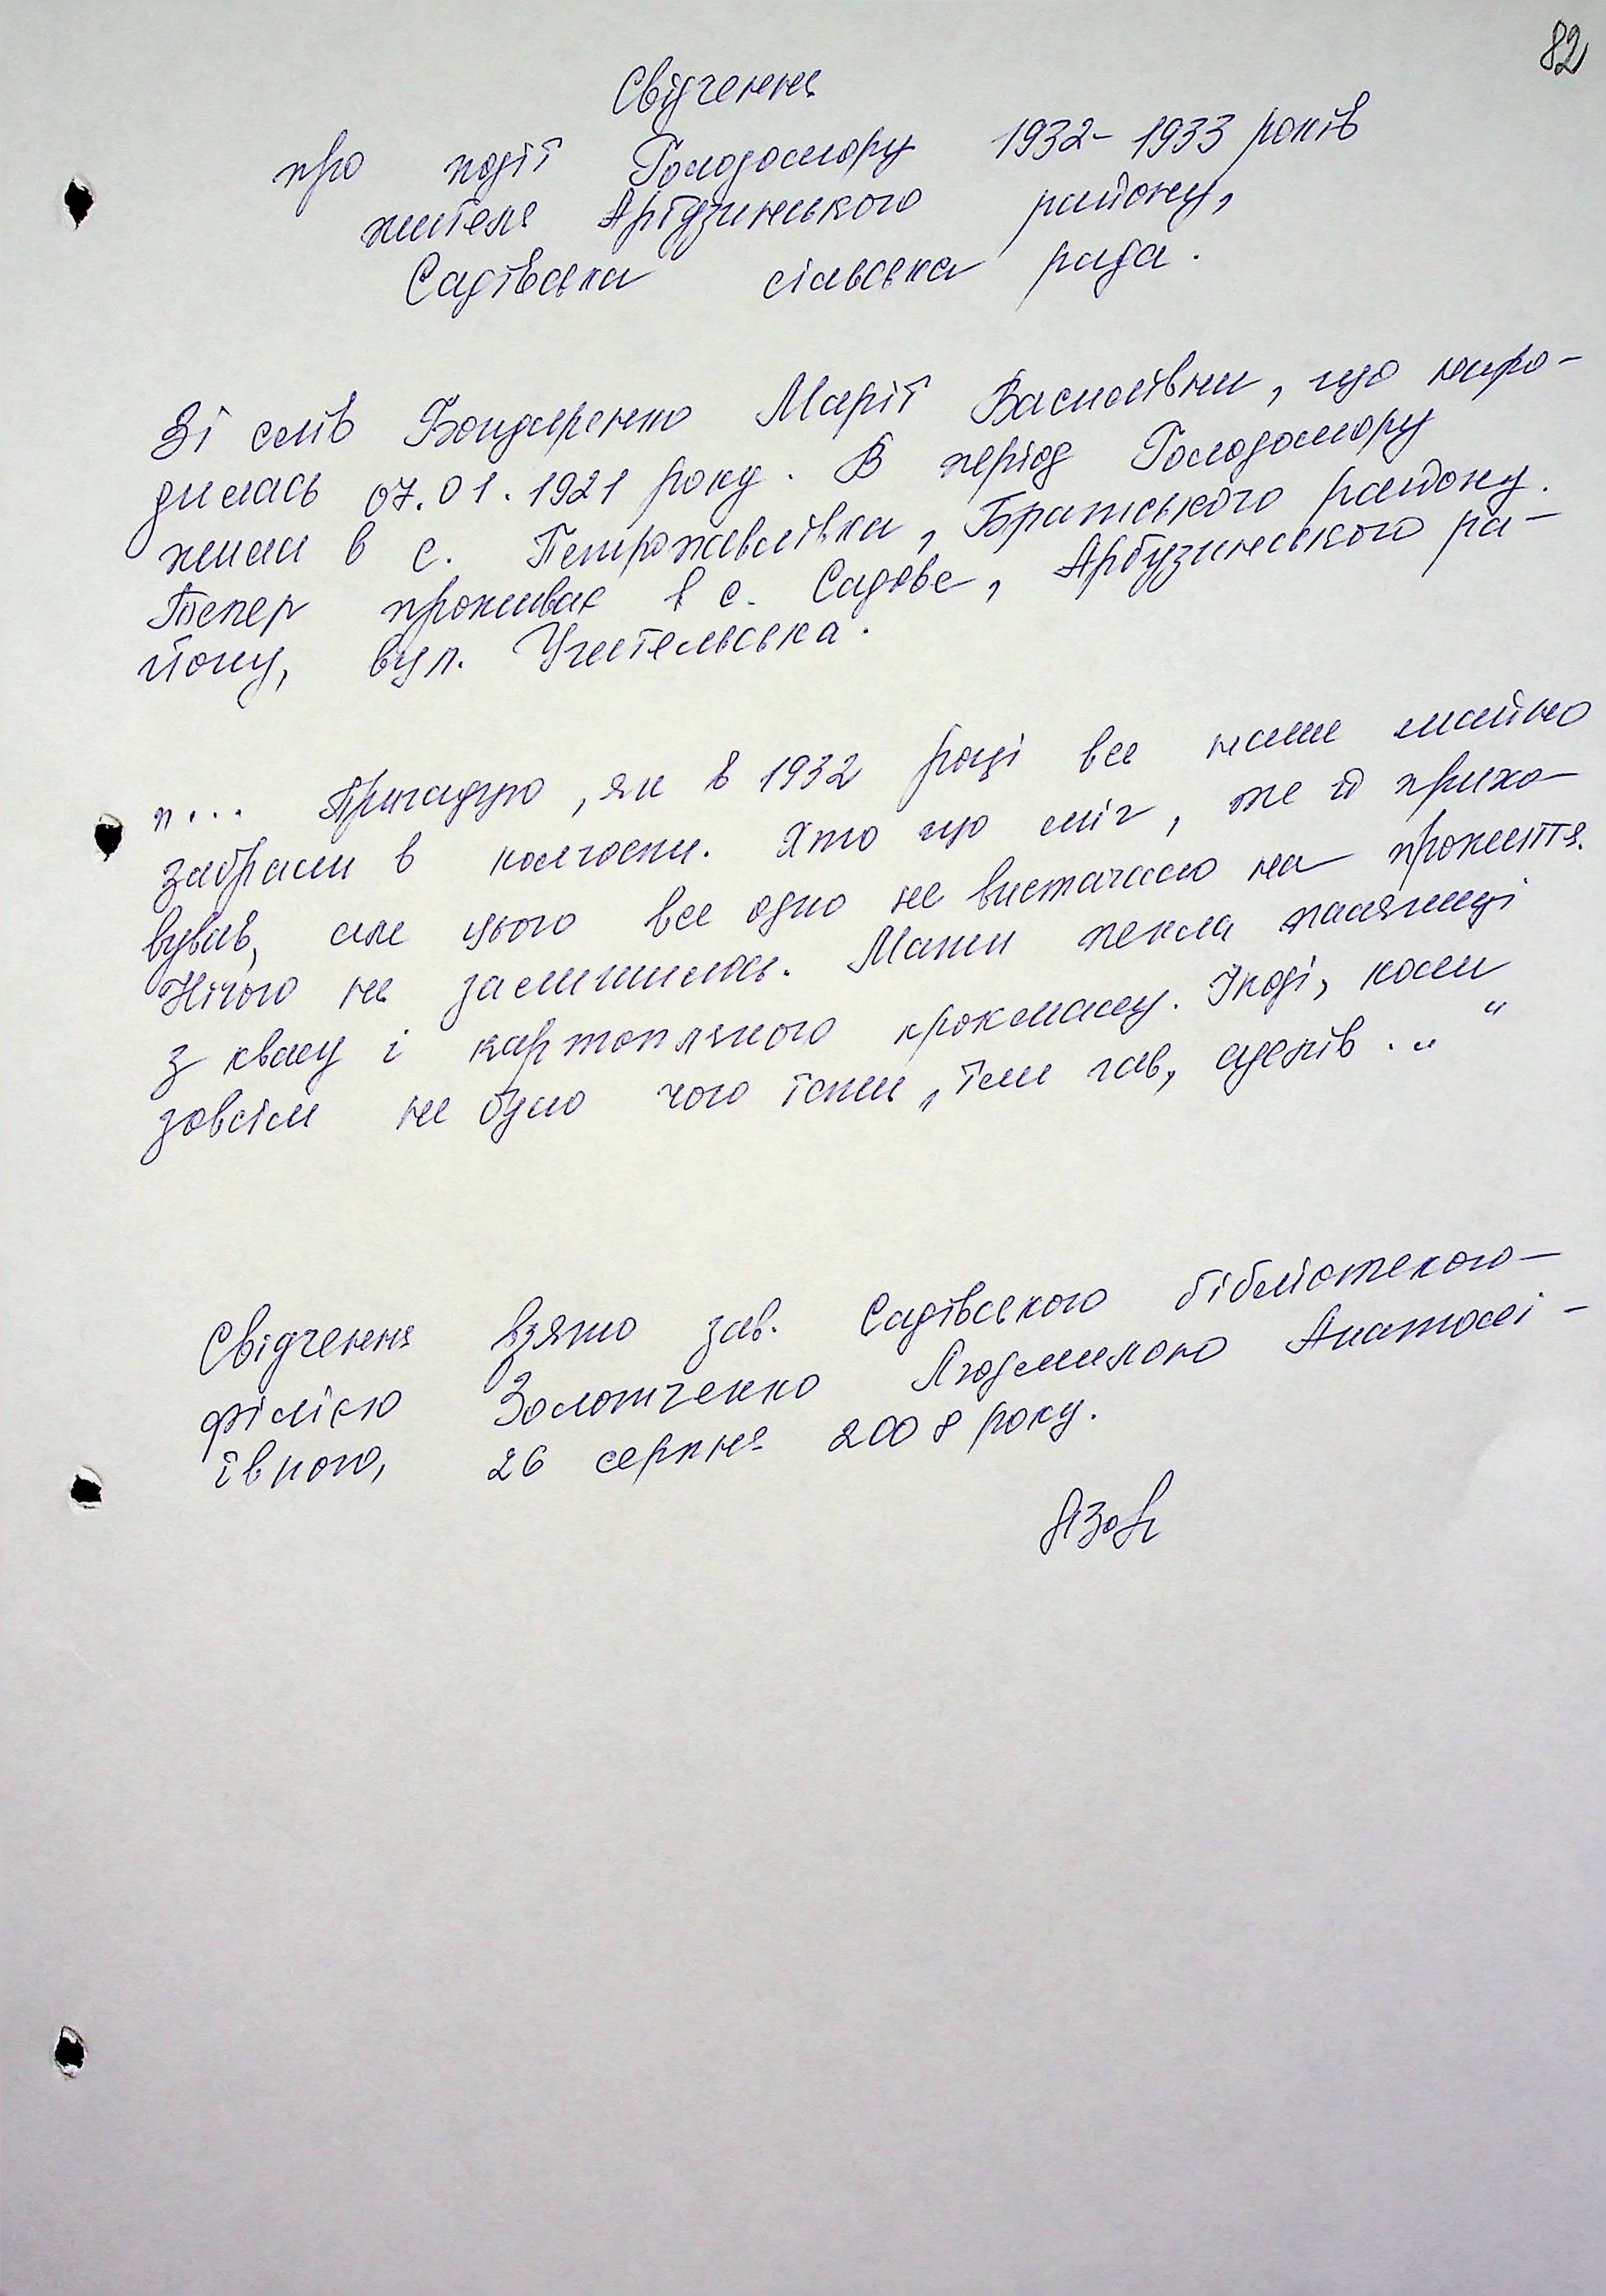 82
Свідчення
про події Голодомору 1932-1933 років
жителя Арбузинського району,
Садівська сільська рада.
Зі слів Бондаренко Марії Василівни, що наро-
дилась 07.01.1921 року. В період Голодомору
жила в с. Петропавлівка, Братського району.
Тепер проживає в с. Садове, Арбузинського ра-
йону, вул. Учительська.
"... Пригадую, як в 1932 році все наше майно
забрали в колгоспи. Хто що міг, те й прихо-
вував, але цього все одно не вистачало на прожиття.
Нічого не залишилось. Мати пекла паляниці
з квасу і картопляного крохмалу. Іноді, коли
зовсім не було чого їсти, їли гав,
Свідчення взято зав. Садівського бібліотекою-
філією Золотченко Людмилою Анатолі-
ївною, 26 серпня 2008 року.